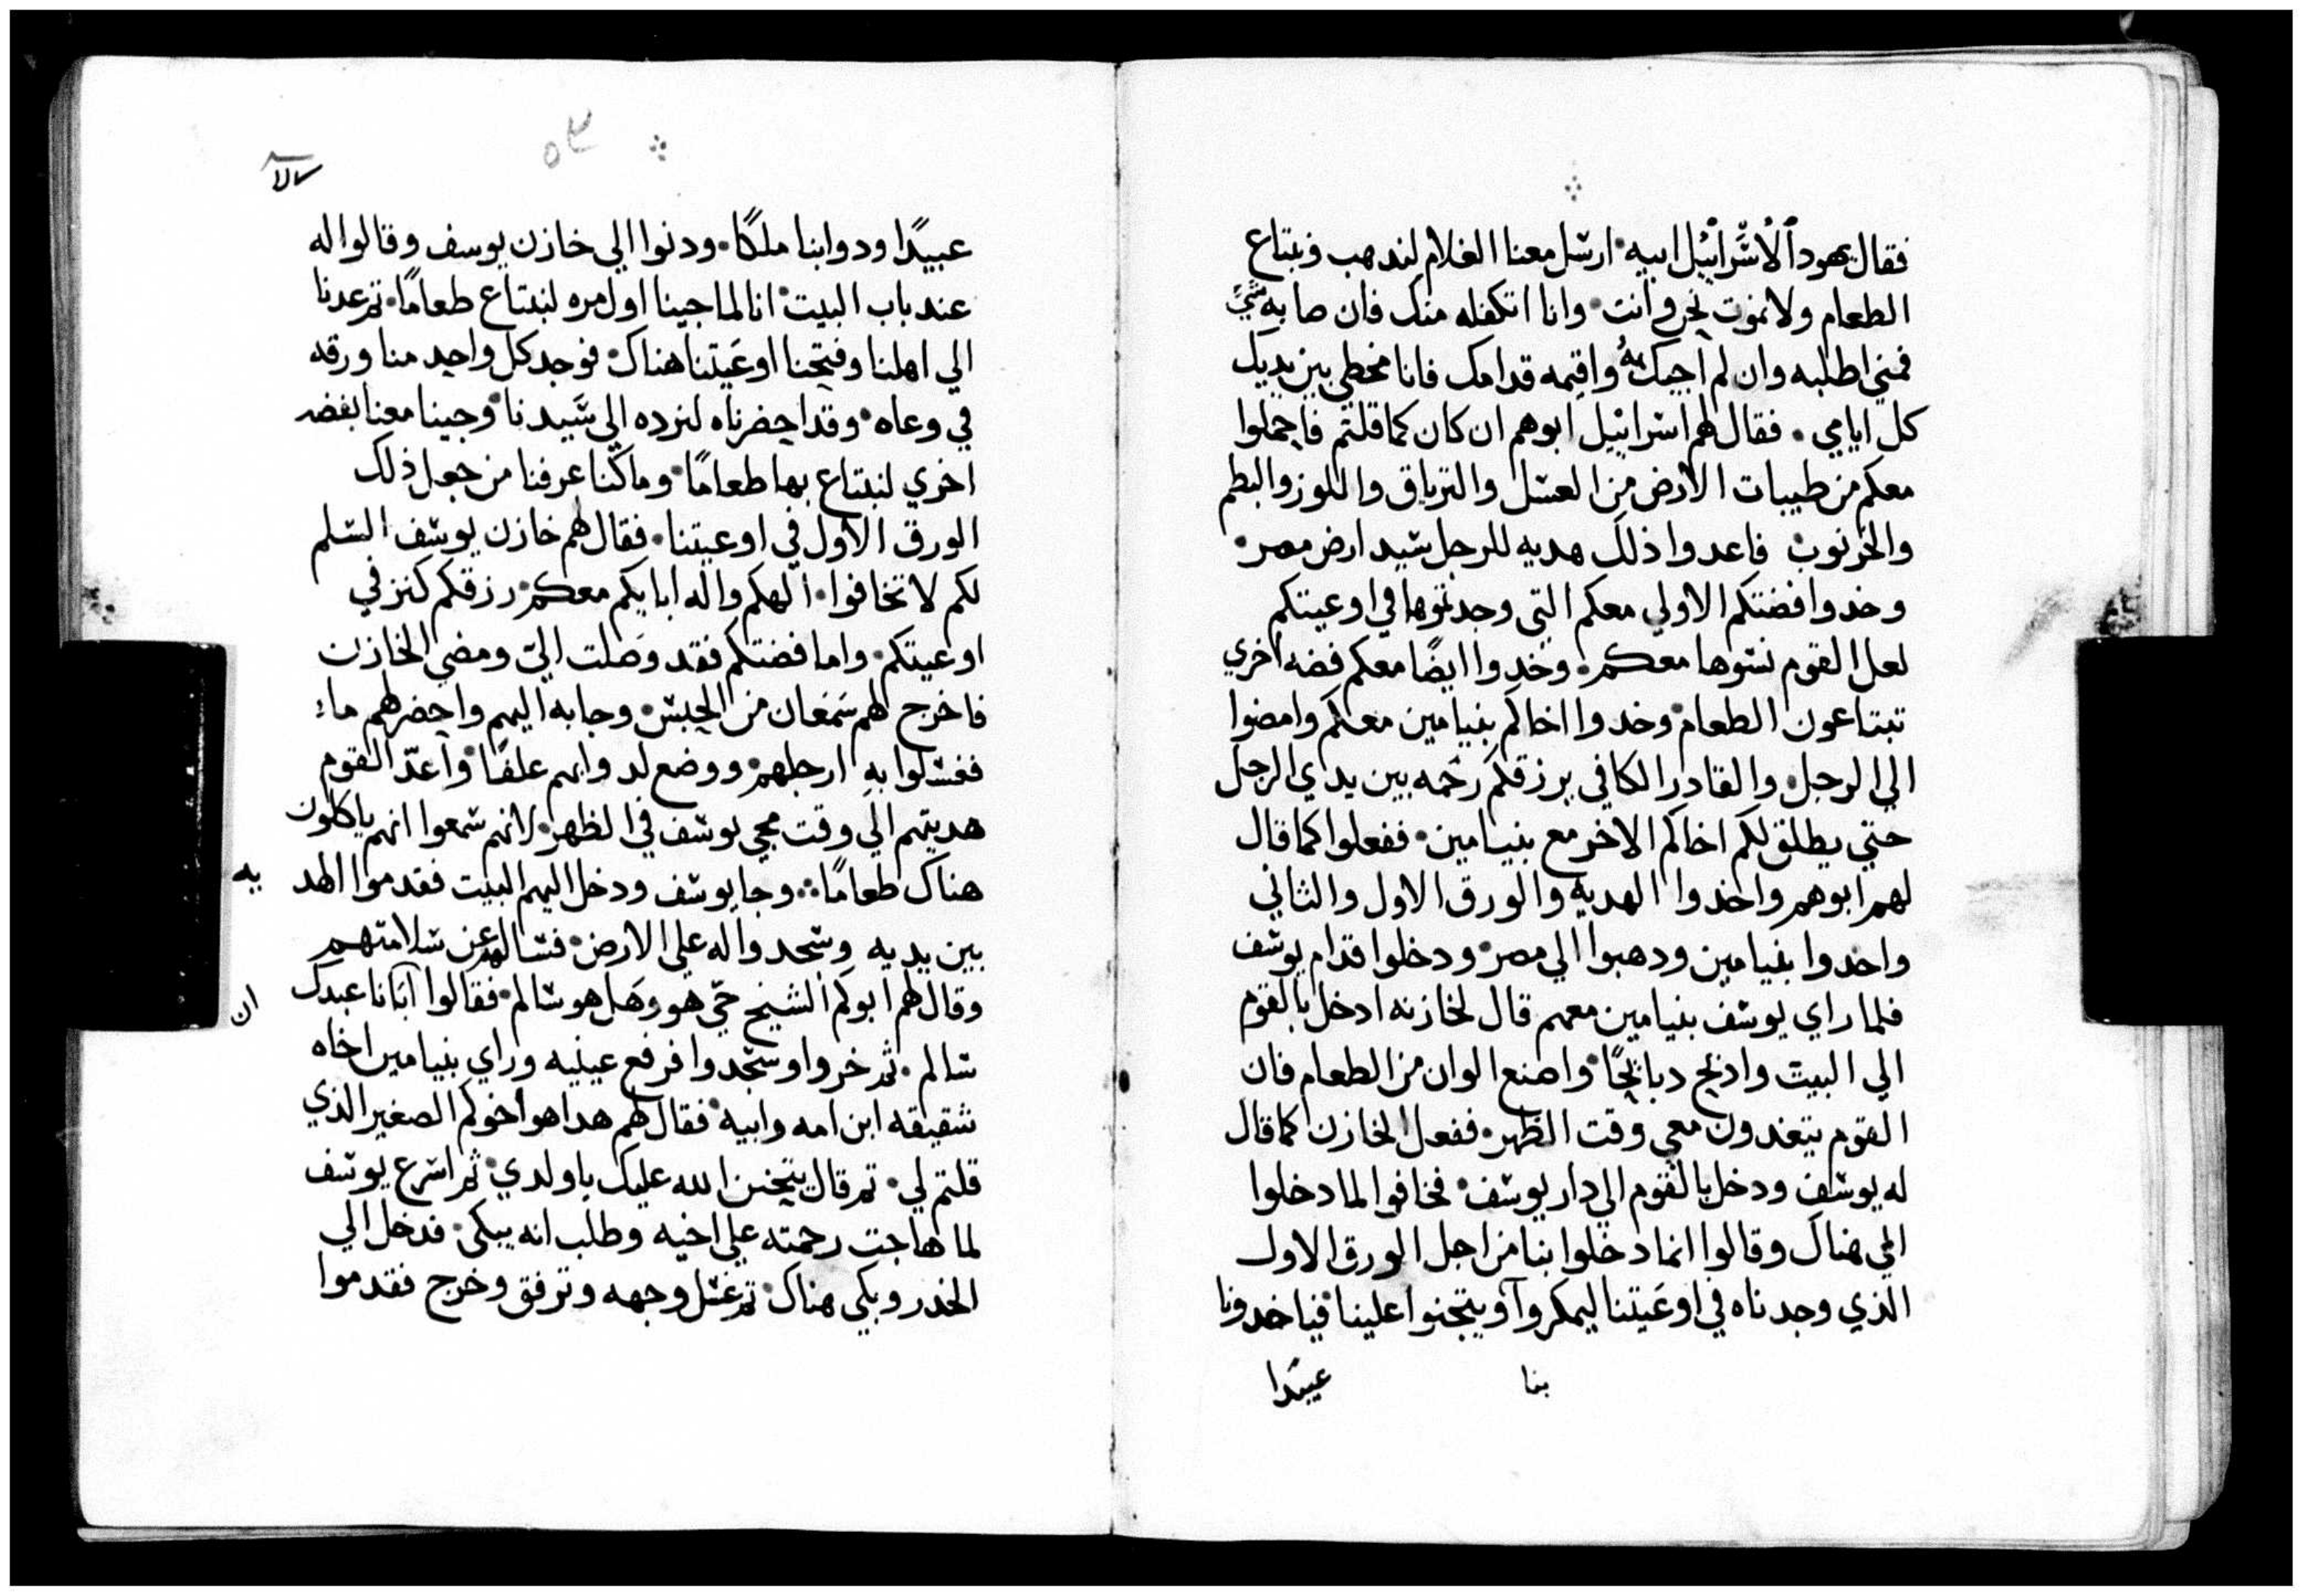 فقال يهودا لاسراييل ابيه ارسل معنا الغلام لندهب ونبتاع
الطعام ولا نموت نحن وانت وانا اتكفله منك فان صابه شيً
فمني اطلبه وان لم اجيك به واقيمه قدامك فانا مخطي بين يديك
كل ايامي فقال لهم اسراييل ابوهم ان كان كما قلتم فاحملوا
معكم من طيبات الارض من العسل والترياق واللوز والبطم
والخرنوب فاعدوا ذلك هديه للرجل سيد ارض مصر
وخدوا فضتكم الاولي معكم التي وجدتموها في اوعيتكم
لعل القوم نسوها معكم وخدوا ايضًا معكم فضه اخري
تبتاعون الطعام وخدوا اخاكم بنيامين معكم وامضوا
الي الرجل والقادر الكافي يرزقكم رحمه بين يدي الرجل
حتي يطلق لكم اخاكم الاخر مع بنيامين ففعلوا كما قال
لهم ابوهم واخدوا الهديه والورق الاول والثاني
واخدوا بنيامين ودهبوا الي مصر ودخلوا قدام يوسف
فلما راي يوسف بنيامين معهم قال لخازنه ادخل بالقوم
الي البيت وادبح دبايحًا واصنع الوان من الطعام فان
القوم يتغدون معي وقت الظهر ففعل الخازن كما قال
له يوسف ودخل بالقوم الي دار يوسف فخافوا لما دخلوا
الي هناك وقالوا انما دخلوا بنا من اجل الورق الاول
الذي وجدناه في اوعيتنا ليمكروا ويتجنوا علينا فياخدونا
بنا عبيدا
عبيدًا ودوابنا ملكًا ودنوا الي خازن يوسف وقالوا له
عند باب البيت انا لما جينا اول مره لنبتاع طعامًا ثم عدنا
الي اهلنا وفتحنا اوعيتنا هناك فوجد كل واحد منا ورقه
في وعاه وقد احضرناه لنرده الي سيدنا وجينا معنا بفضه
اخري لنبتاع بها طعامًا وما كنا عرفنا من جعل ذلك
الورق الاول في اوعيتنا فقال لهم خازن يوسف السلم
لكم لا تخافوا الهكم واله ابايكم معكم رزقكم كنز في
اوعيتكم واما فضتكم فقد وصلت اليّ ومضي الخازن
فاخرج لهم سمعان من الحبس وجابه اليهم واحضر لهم ماء
فغسلوا به ارجلهم ووضع لدوابهم علفًا واعدّ القوم
هديتهم الي وقت مجي يوسف في الظهر لانهم سمعوا انهم ياكلون
هناك طعامًا وجا يوسف ودخل اليهم البيت فقدموا الهديه
بين يديه وسجدوا له علي الارض فسالهم عن سلامتهم
وقال لهم ابوكم الشيخ حيّ هو وهل هو سالم فقالوا ان ابانا عبدك
سالم ثم خروا وسجدوا فرفع عينيه وراي بنيامين اخاه
شقيقه ابن امه وابيه فقال لهم هدا هو اخوكم الصغير الذي
قلتم لي ثم قال يتحنن الله عليك يا ولدي ثم اسرع يوسف
لما هاجت رحمته علي اخيه وطلب انه يبكي فدخل الي
الخدر وبكي هناك ثم غسل وجهه وترفق وخرج فقدموا